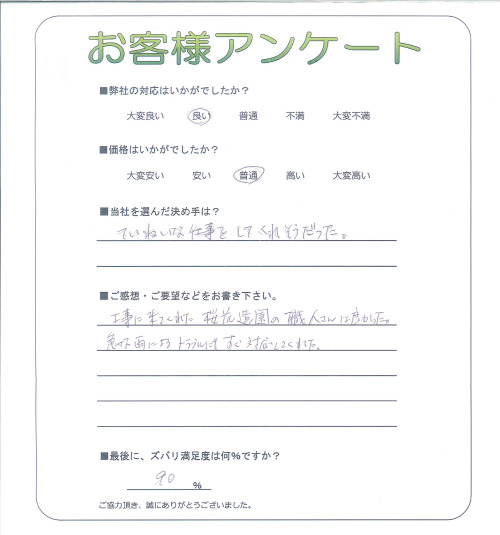 お客様アンケート
■弊社の対応はいかがでしたか？
大変良い 良い 普通 不満 大変不満
■価格はいかがでしたか？
大変安い 安い 普通 高い 大変高い
■当社を選んだ決め手は？
ていねいな仕事をしてくれそうだった。
■ご感想・ご要望などをお書き下さい。
工事に来てくれた 桜花造園の職人さんは良かった。
トラブルにもすぐ対応してくれた。
■最後に、ズバリ満足度は何％ですか？
90 ％
ご協力頂き、誠にありがとうございました。